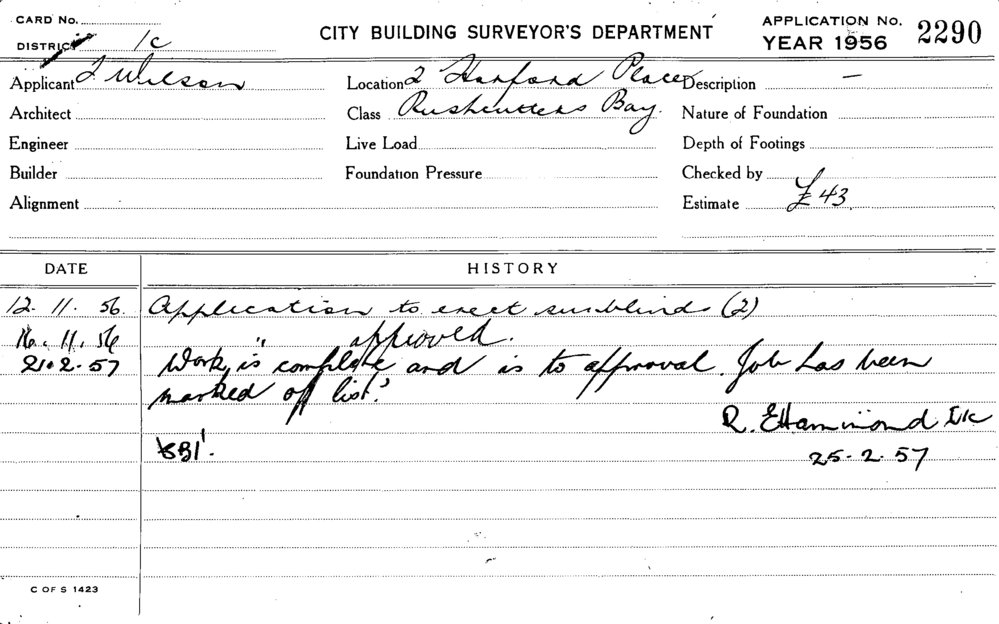 CARD No.
DISTRICT 1c
CITY BUILDING SURVEYOR'S DEPARTMENT
APPLICATION No. 2290
YEAR 1956
Applicant J Wilson
Location 2 Hanford Place
Description —
Architect
Class Rushcutters Bay.
Nature of Foundation
Engineer
Live Load
Depth of Footings
Builder
Foundation Pressure
Checked by
Alignment
Estimate £43
DATE HISTORY
12. 11. 56. Application to erect sunblinds (2)
16. 11. 56 " approved.
21.2.57 Work is complete and is to approval. Job has been
marked off list.
R. E Hammond
25.2.57
C OF S 1423